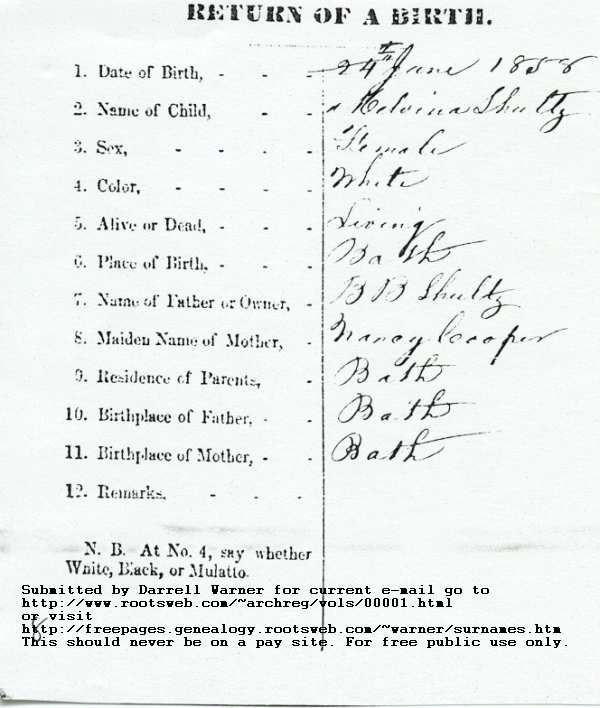 RETURN OF A BIRTH.
1. Date of Birth, - - - 24th June 1858
2. Name of Child, - - Melvina Shultz
3. Sex, - - - - Female
4. Color, - - - - White
5. Alive or Dead, - - - Living
6. Place of Birth, - - - Bath
7. Name of Father or Owner, - B B Shultz
8. Maiden Name of Mother, - Nancy Cooper
9. Residence of Parents, - Bath
10. Birthplace of Father, - - Bath
11. Birthplace of Mother, - - Bath
12. Remarks, - - -
N. B. At No. 4, say whether
White, Black, or Mulatto.
Submitted by Darrell Warner for current e-mail go to
http://www.rootsweb.com/~archreg/vols/00001.html
or visit
http://freepages.genealogy.rootsweb.com/~warner/surnames.htm
This should never be on a pay site. For free public use only.